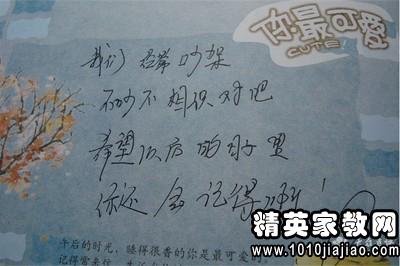 你最可爱
CUTE!
我们经常吵架
不吵不相识对吧
希望以后的日子里
你还会记得
午后的时光，睡得很香的你是最可爱
记得常来信
精英家教网
www.1010jiajiao.com